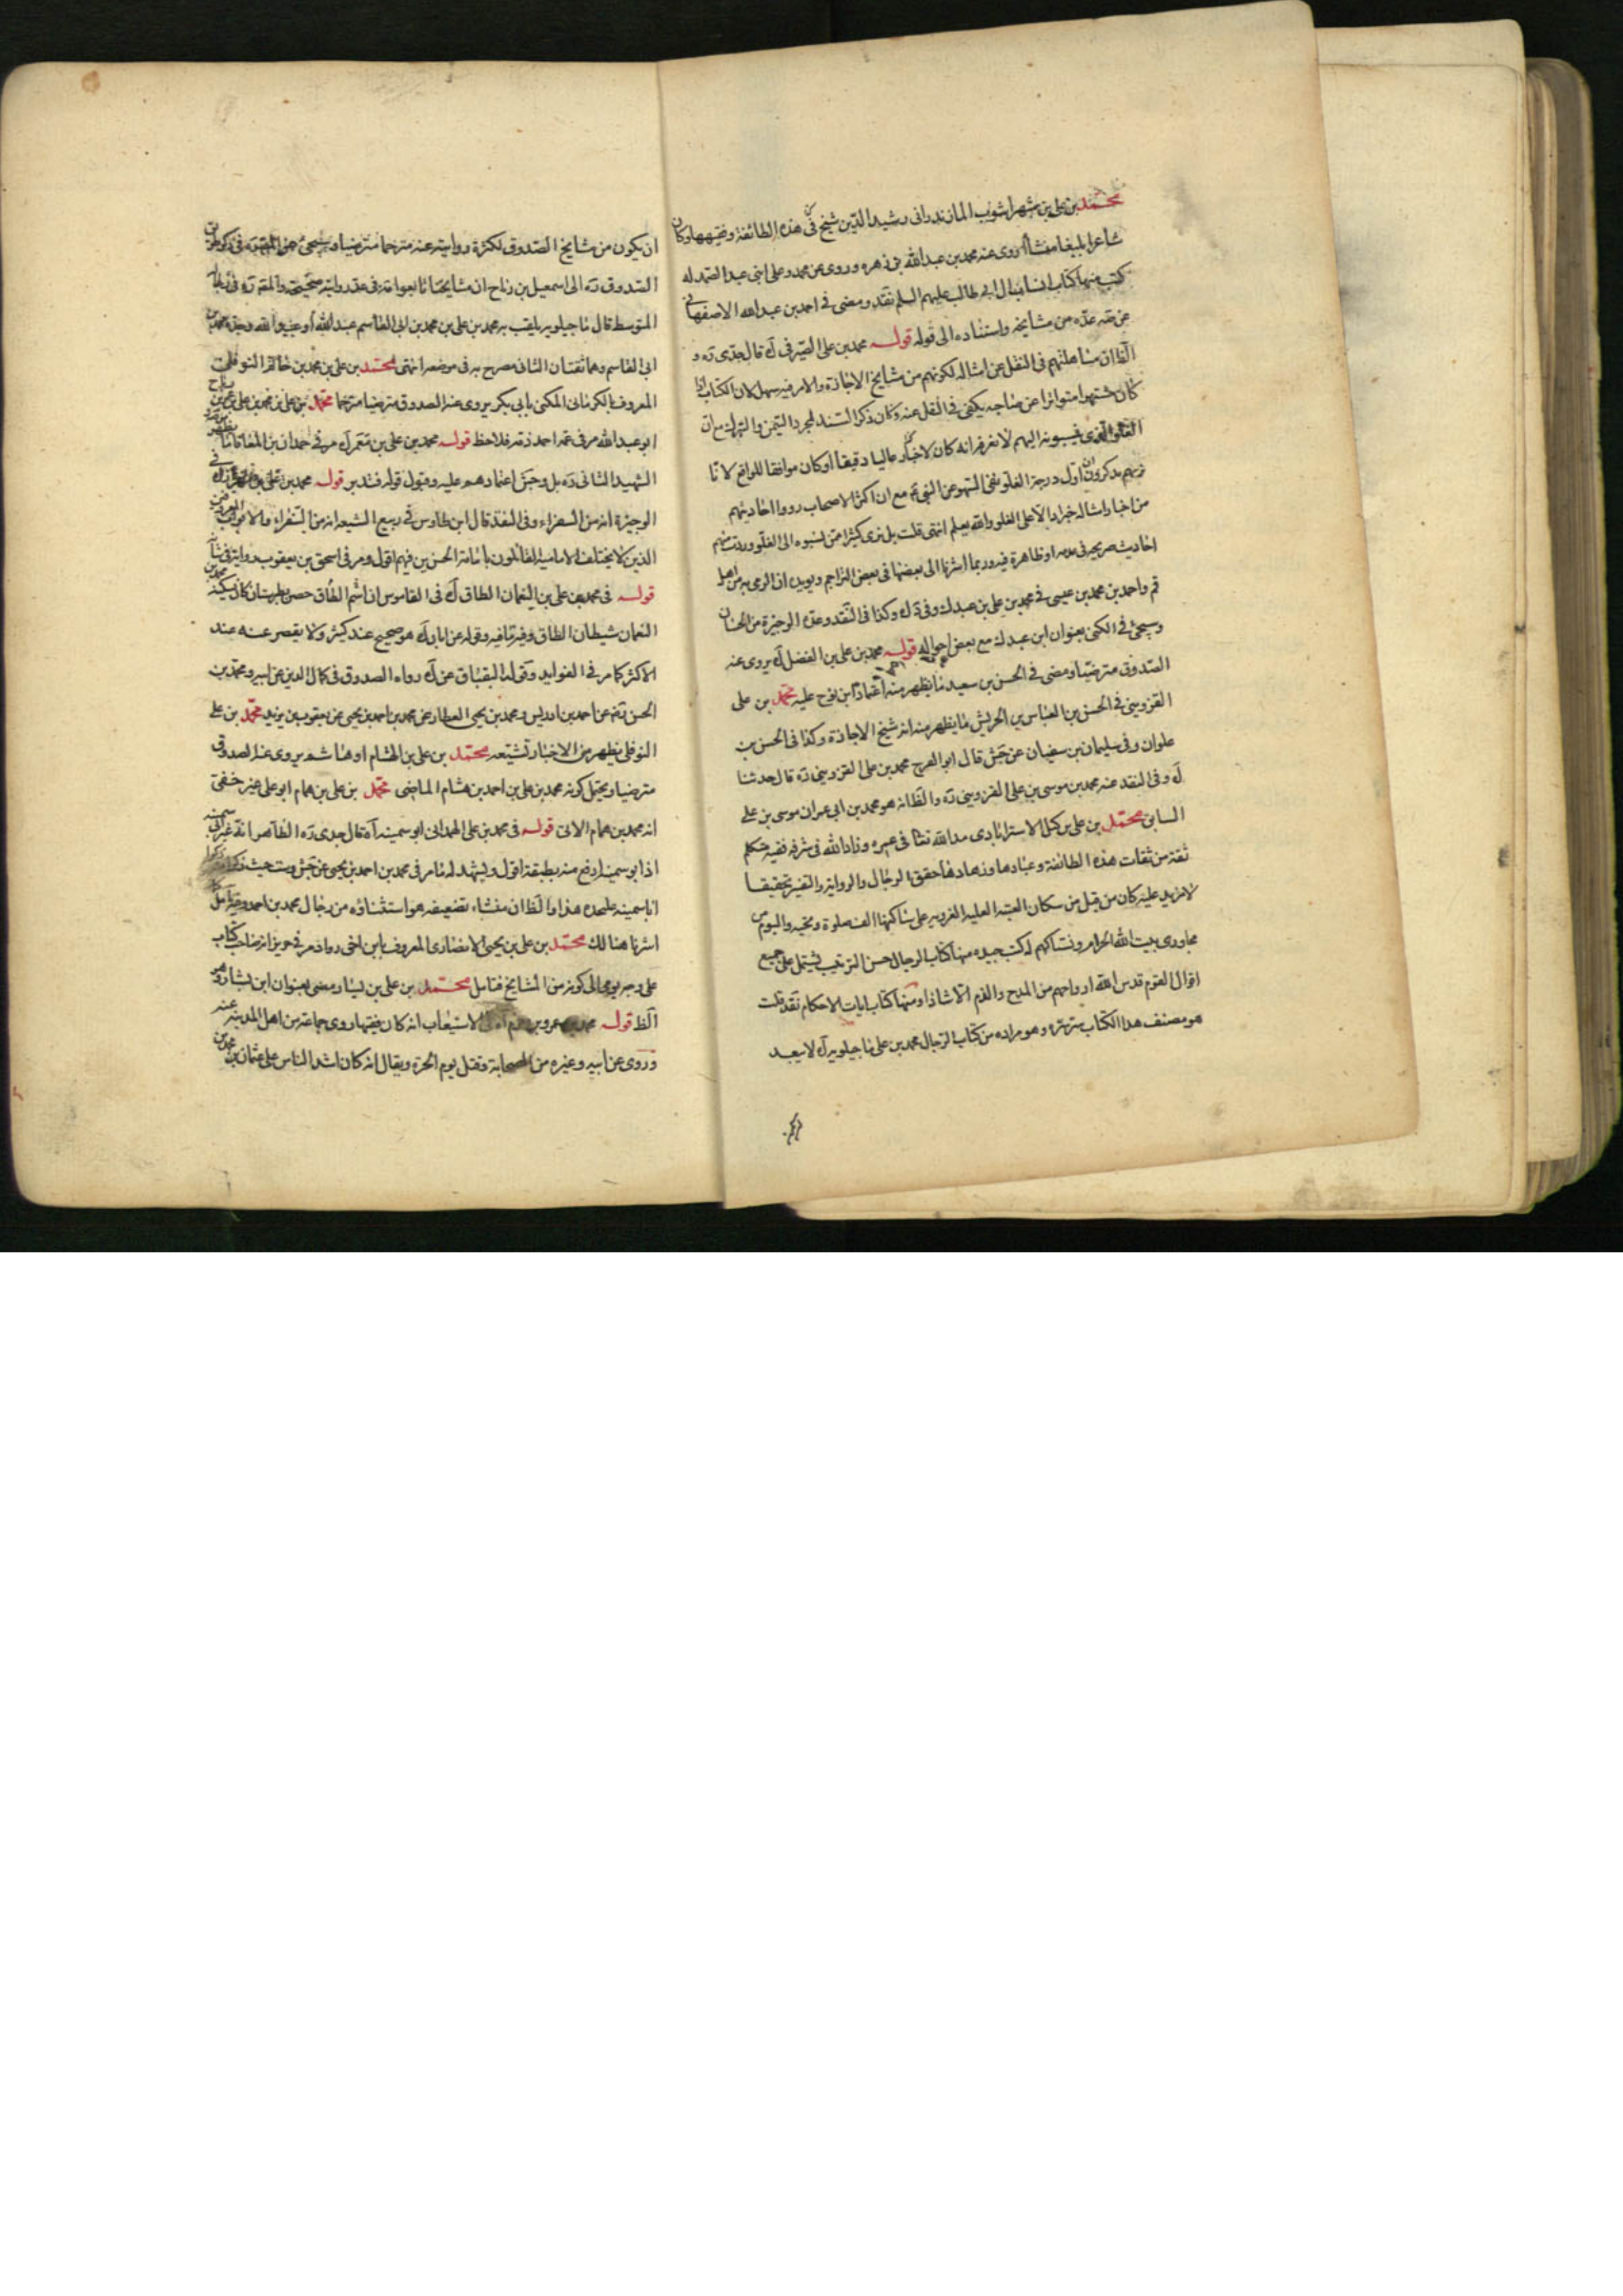 محمد بن علي بن شهر اشوب المازندراني رشيد الدين شيخ في هذه الطائفة وفقيهها وكان
شاعرا بليغا منشأ روى عنه محمد بن عبد الله بن زهره وروى عن محمد وعلي ابني عبد الصمد له
كتب منها كتاب انساب ال ابي طالب عليهم السلم نقد ومضى في احمد بن عبد الله الاصفهاني
عن عده من مشايخه واستناده الى قوله قوله محمد بن علي الصيرفي ك قال جدي ره و
الظ ان مساهلتهم في النقل عن امثاله لكونهم من مشايخ الاجازة والامر فيه سهل لان الكتاب اذا
كان مشتهرا متواترا عن صاحبه يكفي في النقل عنه وكان ذكر السند لمجرد التيمن والتبرك مع ان
الغلو الذي ينسبونه اليهم لا نعرفه انه كان لاخبار عاليا دقيقا او كان موافقا للواقع لانا
نريهم يذكرون ان اول درجة الغلو نفي السهو عن النبي ص مع ان اكثر الاصحاب رووا احاديثهم
من اخبار امثاله خبرا دالا على الغلو والله يعلم انتهى قلت بل نرى كثيرا ممن نسبوه الى الغلو وردت منهم
احاديث صريحة في عدمه او ظاهرة فيه وربما اشرنا الى بعضها في بعض التراجم ويؤيده ان الرمي به من اهل
قم واحمد بن محمد بن عيسى في محمد بن علي بن عبدك وفي ك وكذا في النقد وعده الوجيزة من الحسان
وسيجئ في الكنى بعنوان ابن عبدك مع بعض احواله قوله محمد بن علي بن الفضل ك يروى عنه
الصدوق مترضيا ومضى في الحسن بن سعيد ما يظهر منه اعتماد ابن نوح عليه محمد بن علي
القزويني في الحسن بن العباس بن الحريش ما يظهر منه انه شيخ الاجازة وكذا في الحسن بن
علوان وفي سليمان بن سفيان عن جش قال ابو الفرج محمد بن علي القزويني ره قال حدثنا
ك وفي النقد عنه محمد بن موسى بن علي القزويني ره والظ انه هو محمد بن ابي عمران موسى بن علي
السابق محمد بن علي بن كيل الاسترابادي مد الله تعا في عمره وزاد الله في شرفه فقيه متكلم
ثقة من ثقات هذه الطائفة وعبادها وزهادها حقق الرجال والرواية والتفسير تحقيقا
لا مزيد عليه كان من قبل من سكان العتبه العليه الغرويه على ساكنها الف صلوة وتحيه واليوم من
مجاوري بيت الله الحرام ونساكهم له كتب جيده منها كتاب الرجال حسن الترتيب يشتمل على جميع
اقوال القوم قدس الله ارواحهم من المدح والذم الا شاذا ومنها كتاب ايات الاحكام نقد قلت
هو مصنف هذا الكتاب سره وهو مراده من كتاب الرجال محمد بن علي ماجيلويه ك لا يبعد
ان يكون من مشايخ الصدوق لكثرة روايته عنه مترحما مترضيا وسيجئ عن المصنف في ذكر طريق
الصدوق ره الى اسمعيل بن رباح ان مشايخنا تابعوا قده في عد روايته صحيحة والمقدره في
المتوسط قال ماجيلويه يلقب به محمد بن علي بن محمد بن ابي القاسم عبد الله او عبيد الله وجده محمد بن
ابي القاسم وهما ثقتان الثاني مصرح به في موضعه انتهى محمد بن علي بن محمد بن حاتم النوفلي
المعروف بالكرماني المكنى بابي بكر يروى عنه الصدوق مترضيا مترحما محمد بن علي بن محمد بن علي بن
ابو عبد الله مر في عمه احمد فلاحظ قوله محمد بن علي بن معمر ك مر في حمدان بن المعافا ما
الشهيد الثاني ره بل وجش اعتمادهم عليه وقبول قوله فتدبر قوله محمد بن علي بن
الوجيزة انه من السفراء وفي النقد قال ابن طاوس في ربيع الشيعه انه من السفراء والابواب
الذين لا يختلف الامامية القائلون بامامة الحسن بن فيهم اقول ومر في اسحق بن يعقوب
قوله في محمد بن علي بن النعمان الطاق ك في القاموس ان اسم الطاق حصن بطبرستان كان يسكنه
النعمان شيطان الطاق وفيه ما فيه وقوله عن ابان ك هو صحيح عند كثير ولا يقصر عنه عند
الاكثر كما مر في الفوايد وقوله البقباق عن ك رواه الصدوق في كمال الدين عن ابيه ومحمد بن
الحسن عن احمد بن ادريس ومحمد بن يحيى العطار عن محمد بن احمد بن يحيى عن يعقوب بن يزيد محمد بن علي
النوفلي يظهر من الاخبار تشيعه محمد بن علي بن الهشام او هاشم يروى عنه الصدوق
مترضيا ويحتمل كونه محمد بن علي بن احمد بن هشام الماضي محمد بن علي بن همام ابو علي غير خفي
انه محمد بن همام الاتي قوله في محمد بن علي الهمداني ابو سمينه اه قال جدي ره الظاهر انه غير ابي سمينه
اذ ابو سمينه ارفع منه بطبقة اقول ويشهد له ما مر في محمد بن احمد بن يحيى عن جش وست حيث ذكرا
ابا سمينه عليحده هذا والظ ان منشاء تضعيفه هو استثناؤه من رجال محمد بن احمد وفيه تامل
اشرنا هنالك محمد بن علي بن يحيى الانصاري المعروف بابن اخي رواد مر في حريز انه صاحب كتاب
على وجه يومي الى كونه من المشايخ فتامل محمد بن علي بن يسار ومضى بعنوان ابن بشار وهو
الظ قوله محمد بن عمرو بن حزم اه في الاستيعاب انه كان فقيها روى جماعة من اهل المدينه عنه
وروى عن ابيه وغيره من الصحابة وقتل يوم الحرة ويقال انه كان اشد الناس على عثمان